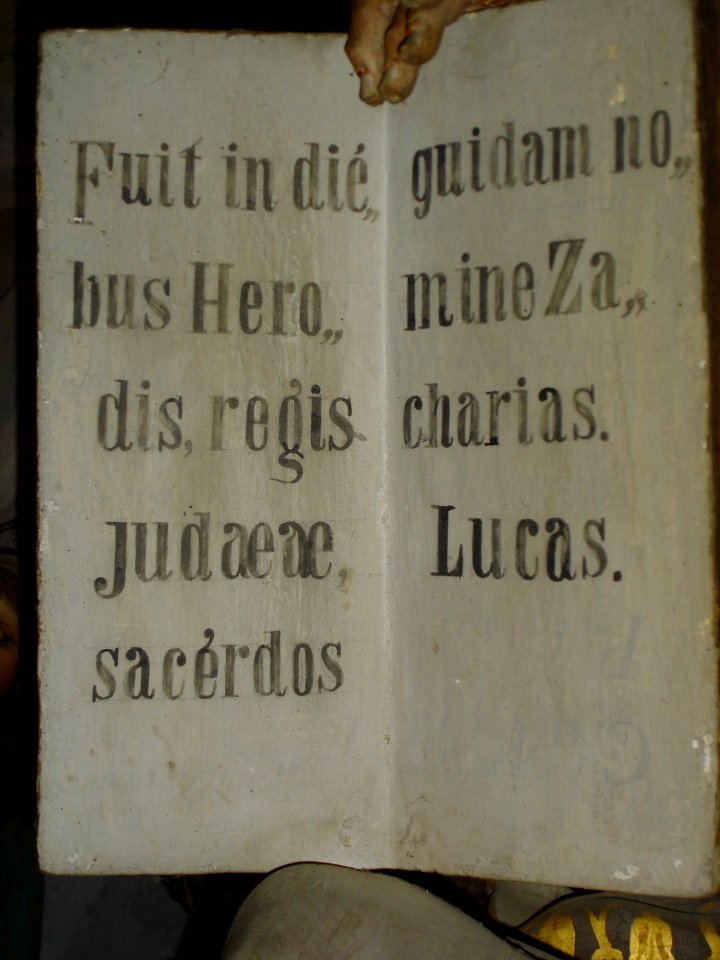 Fuit in dié„
bus Hero„
dis, regis
judaeae,
sacérdos
guidam no„
mine Za„
charias.
Lucas.